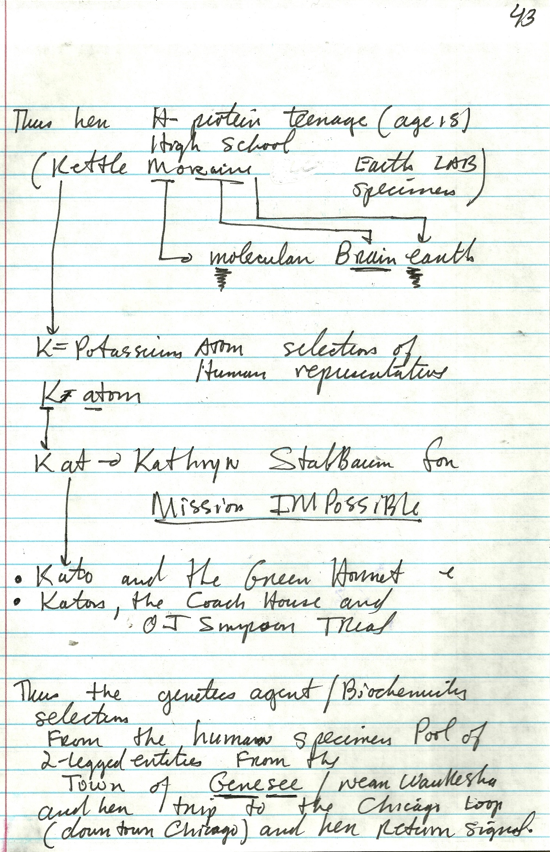 43
Thus her H- protein teenage (age 18)
High school
(Kettle Moraine Earth LAB
specimen)
molecular Brain earth
K= Potassium Atom selection of
Human representative
K= atom
Kat → Kathryn StalBaum for
Mission IMPossiBle
• Kato and the Green Hornet
• Katos, the Coach House and
OJ Simpson Trial
Thus the genetics agent / Biochemistry
selection
From the human specimen Pool of
2-legged entities From the
Town of Genesee / near Waukesha
and her trip to the Chicago Loop
(downtown Chicago) and her Return signal.